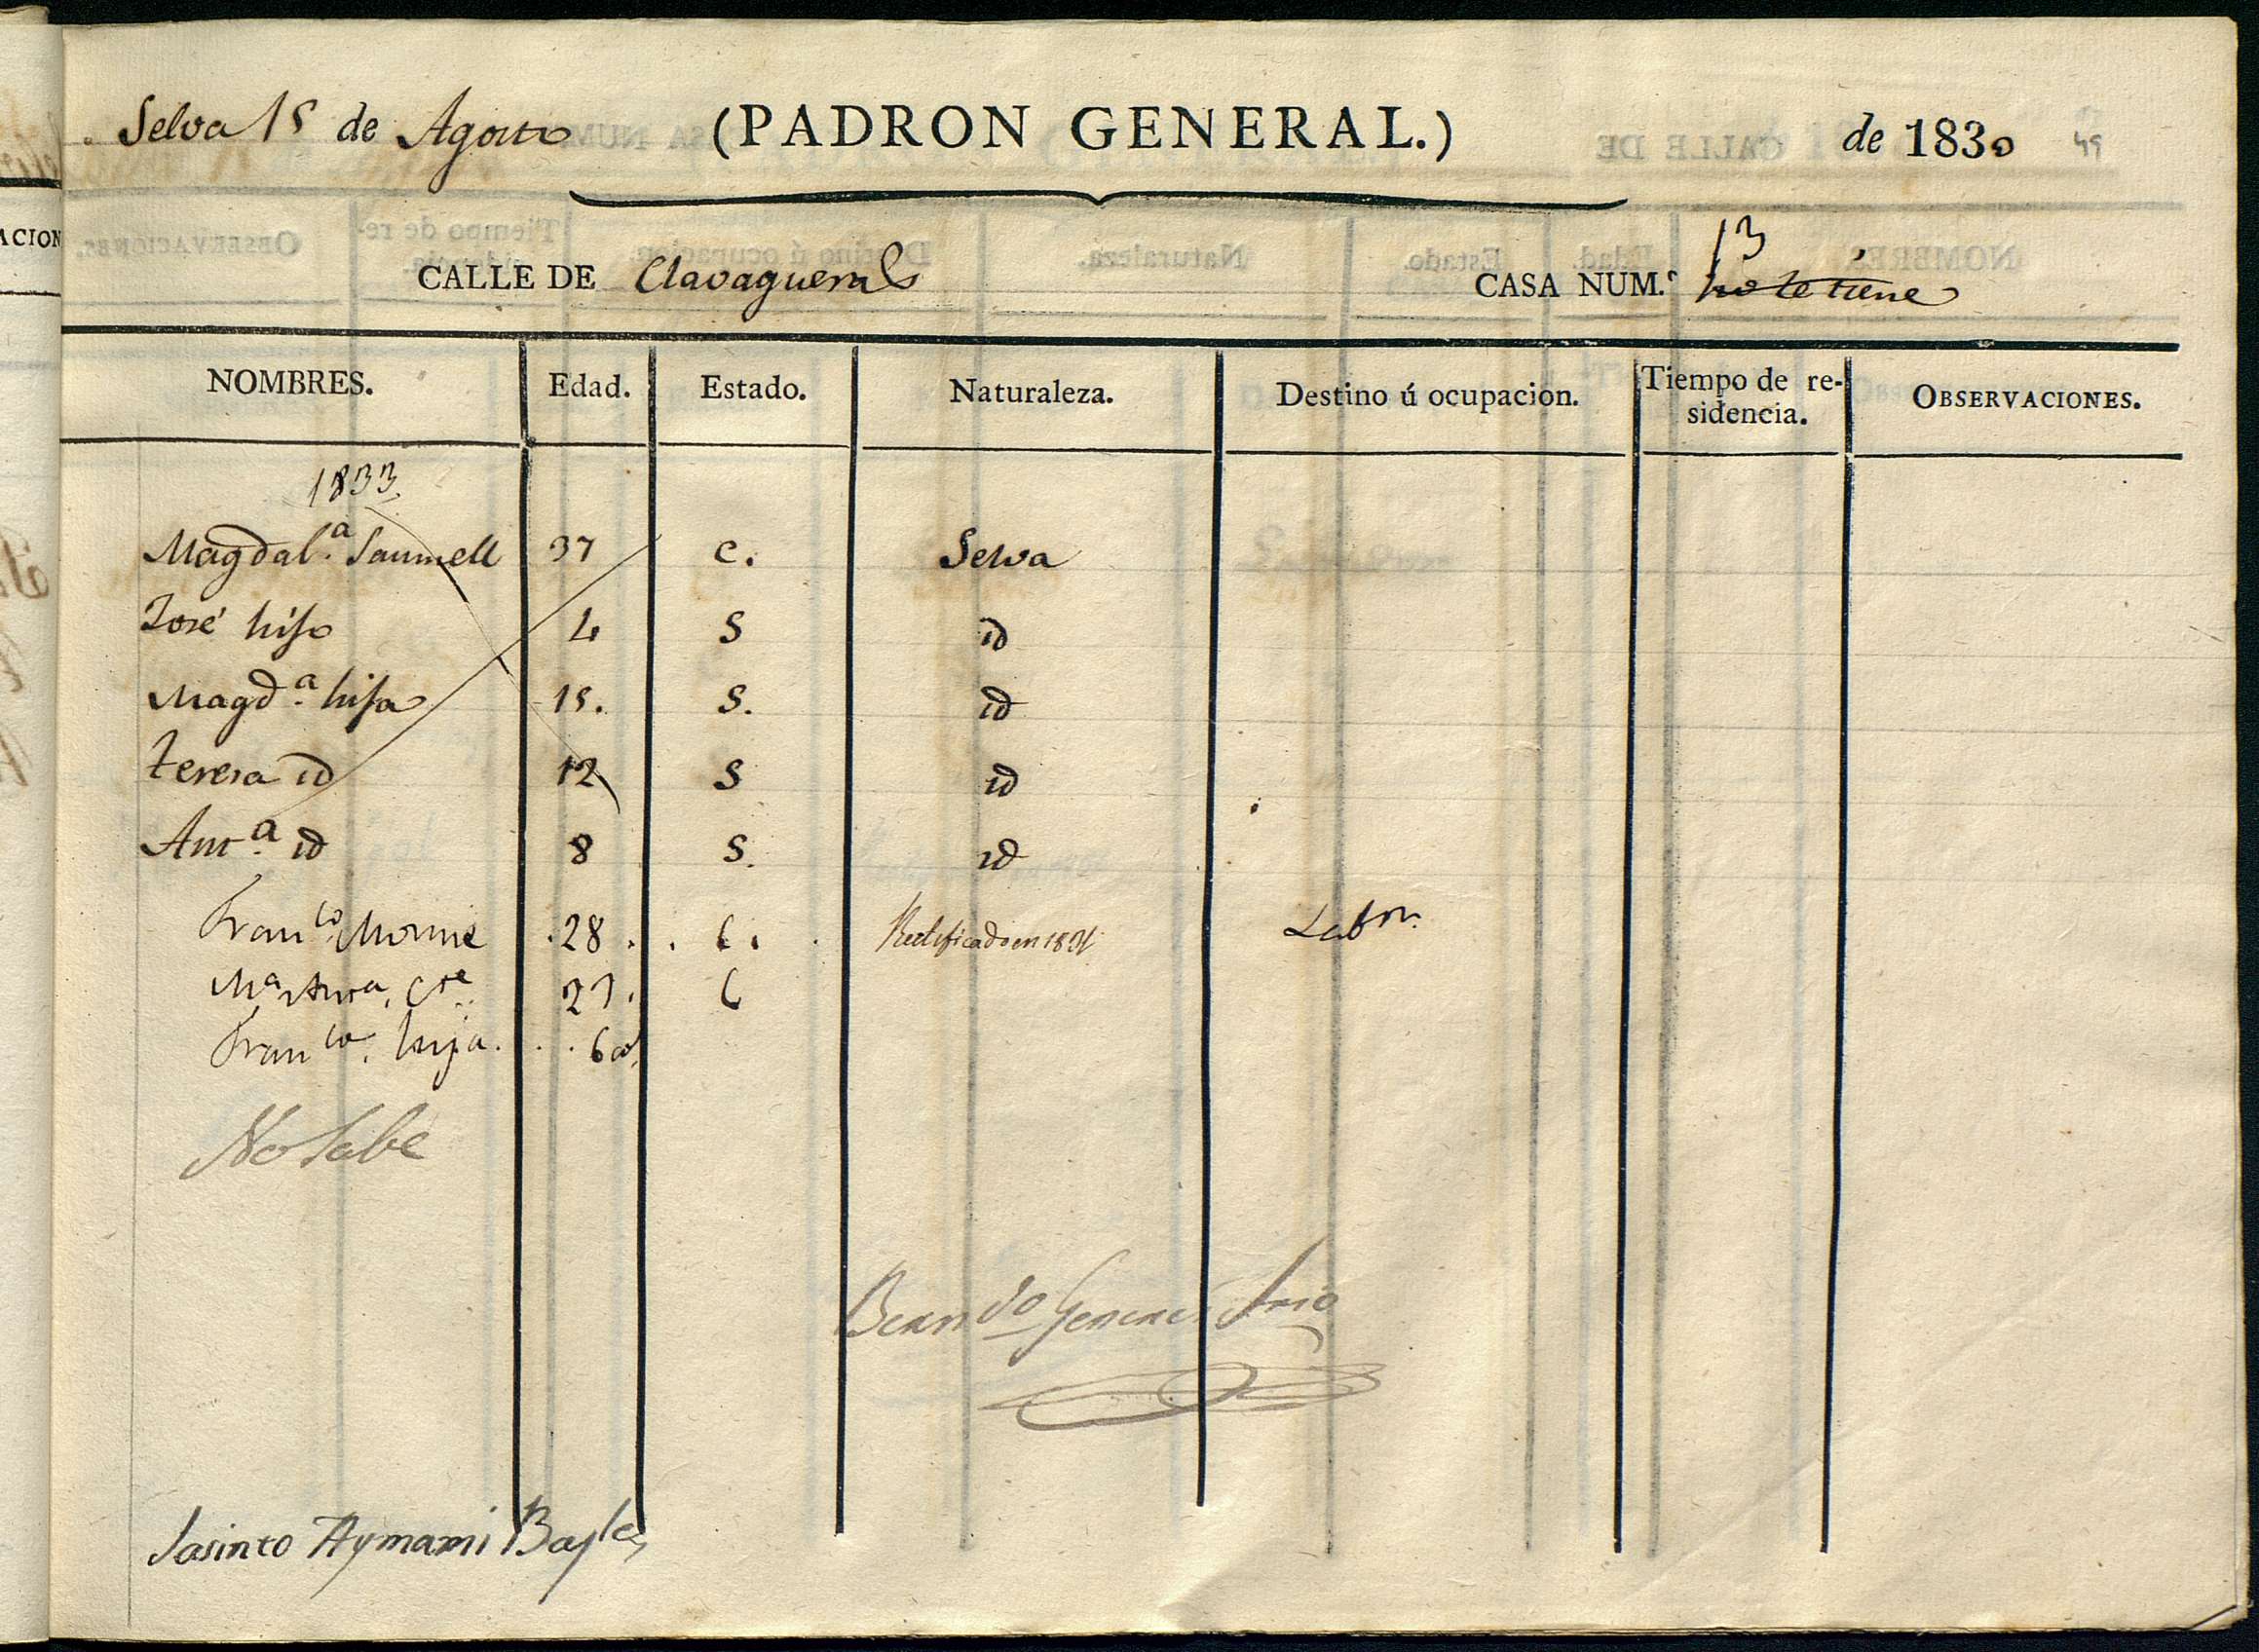 Selva 15 de Agosto (PADRON GENERAL.) de 1830 49
CALLE DE Clavaguerals CASA NUM.º 13 no le tiene
ACION
NOMBRES. Edad. Estado. Naturaleza. Destino ú ocupacion. Tiempo de re-sidencia. OBSERVACIONES.
1833.
Magdal.ª Saumell 37 C. Selva
José hijo 4 S id
Magd.ª hija 15. S. id
Teresa id 12 S id
Ant.ª id 8 S. id
Fran.co 28 C. Rectificado en 1831 Labr.
27. C
Fran.ca hija. 6
No Sabe
Bern.do Srio
Jasinto Aymami Bayle